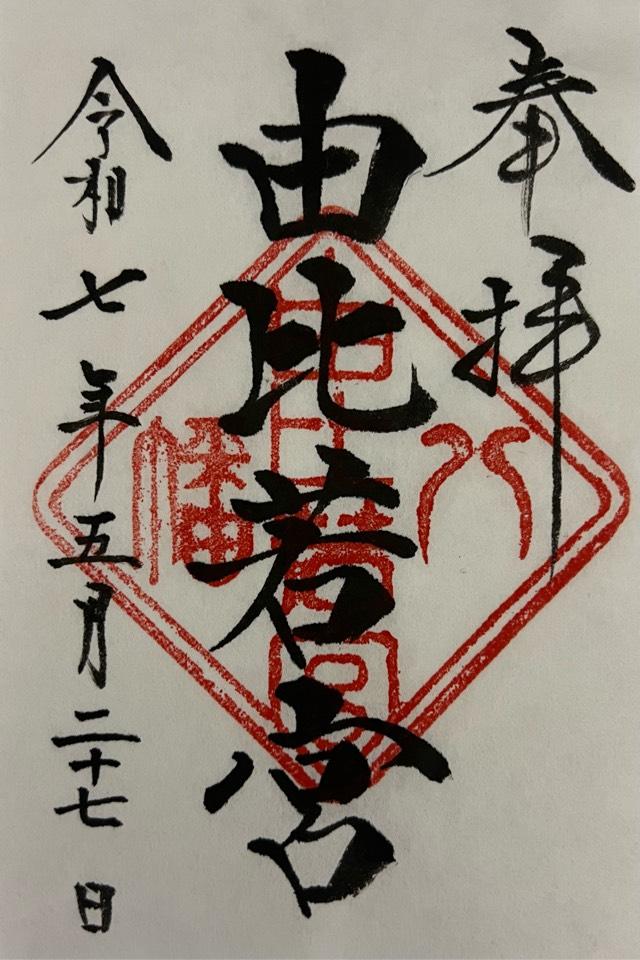 奉拝
由比若宮
令和七年五月二十七日
八幡